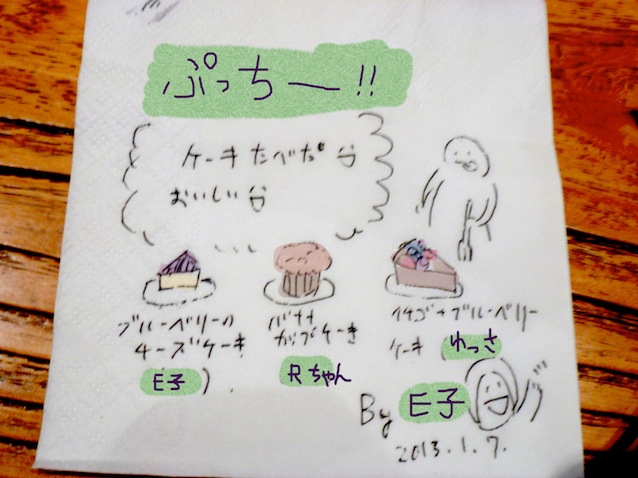 ぷっちー!!
ケーキたべた
おいしい
ブルーベリーの
チーズケーキ
E子
バナナ
カップケーキ
Rちゃん
イチゴ+ブルーベリー
ケーキ ゆっさ
By E子
2013.1.7.